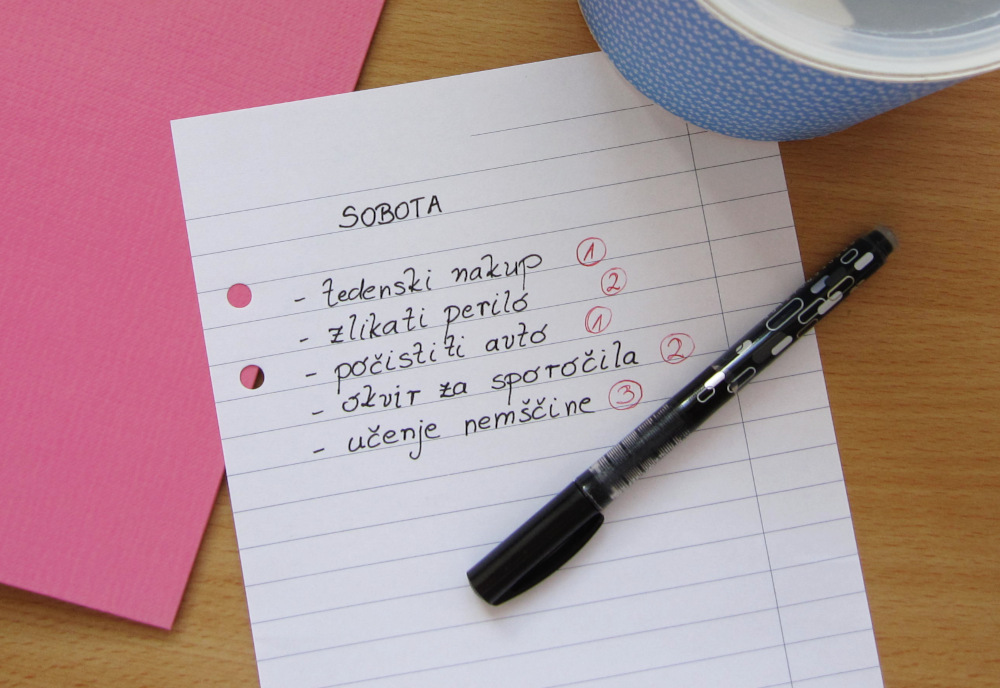 SOBOTA
- tedenski nakup 1
- zlikati perilo 2
- počistiti avto 1
- okvir za sporočila 2
- učenje nemščine 3